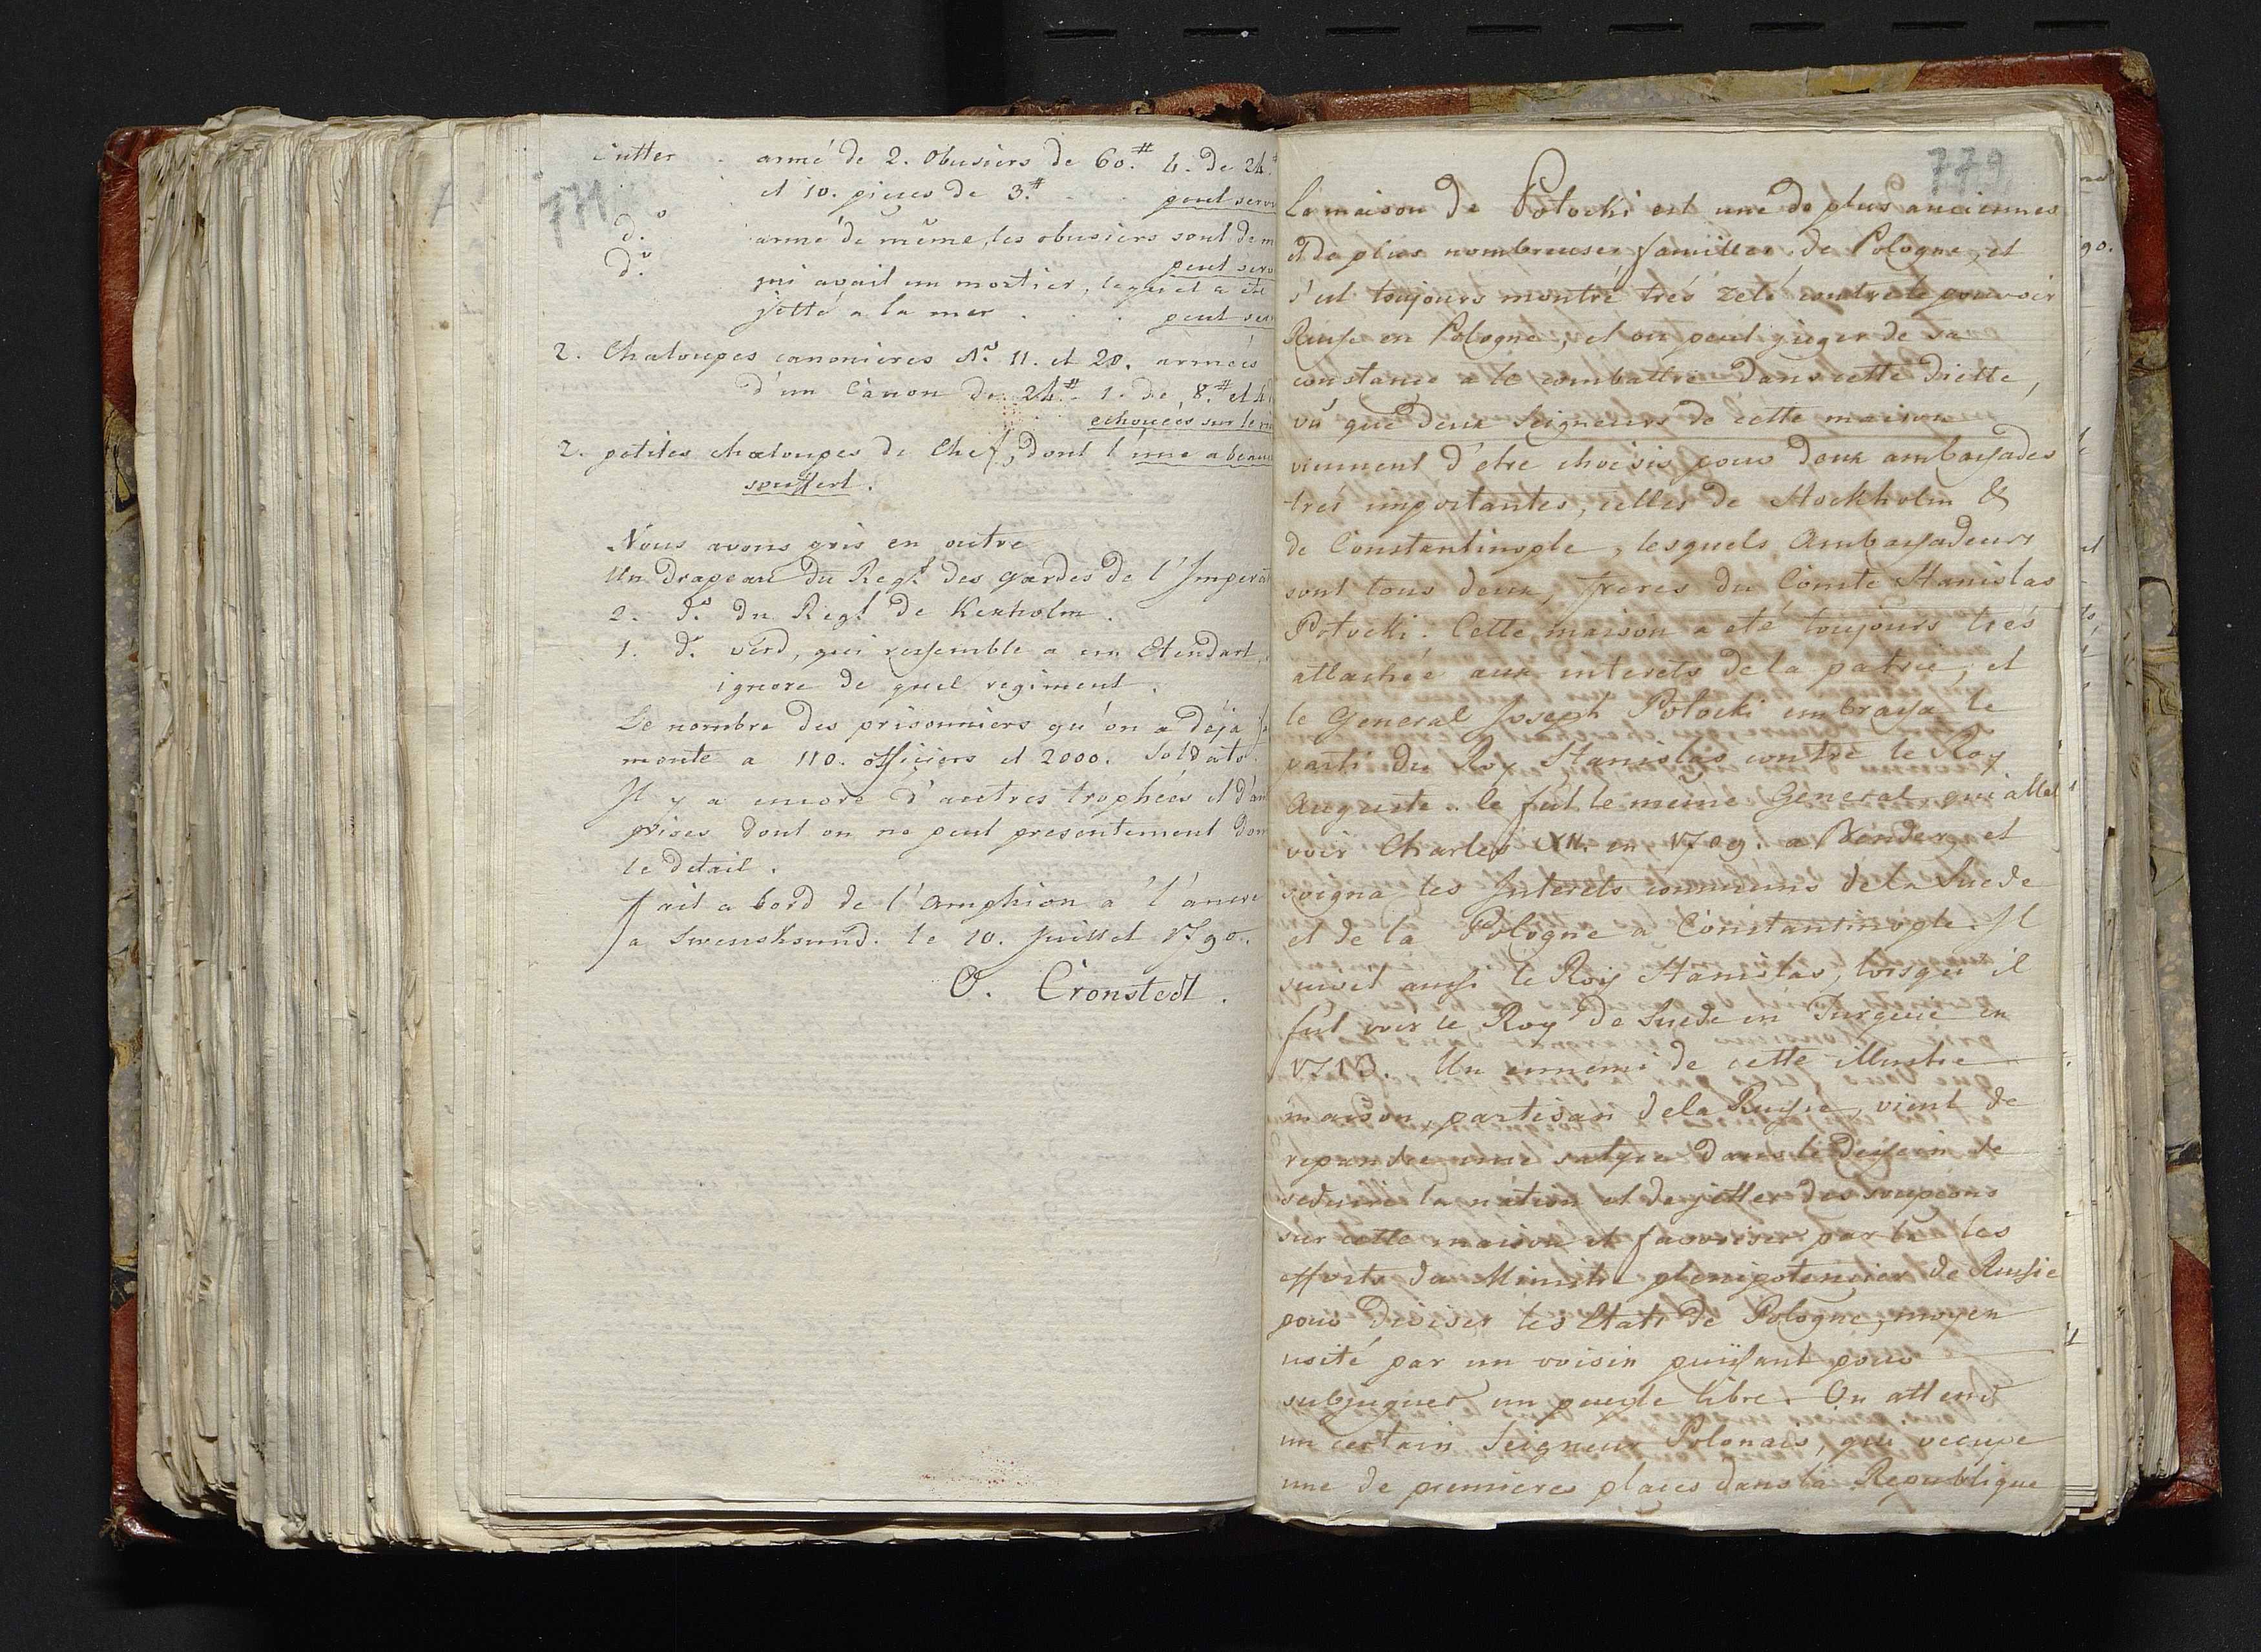 Cutter . armé de 2. Obusiers de 60.# 4. de 24.#
et 10. pieces de 3.# - - peut servi
d.o armé de même, les obusiers sont de m
peut serv
d.o qui avait un mortier, lequel a été
jetté a la mer . . . peut ser
2. Chaloupes canonieres No. 11. et 28. armées
d'un Canon de 24.# 1. de 8.# et 4
echouées sur le
2. petites chaloupes de Chef, dont l'une a beauc
souffert.
Nous avons pris en outre
Un Drapeau du Regt des gardes de l'Imperat
2. d.o du Regt de Kexholm.
1. d.o verd, qui ressemble a un Etendart,
ignore de quel regiment.
Le nombre des prisonniers qu'on a déja
monte a 110. officiers et 2000. Soldats.
Il y a encore d'autres trophées et d'au
prises dont on ne peut presentement don
le detail.
fait a bord de l'Amphion à l'ancre
a Swensksund. le 10. Juillet 1790.
O. Cronstedt.
779
La maison de Potocki est une de plus anciennes
et de plus nombreuses familles de Pologne, et
s'est toujours montré trés zelé contre le pouvoir
Russe en Pologne, et on peut juger de sa
constance a le combattre dans cette Diette,
vû que deux Seigneurs de cette maison
viennent d'etre choisis pour deux ambassades
trés importantes, celles de Stockholm &
de Constantinople, lesquels Ambassadeurs
sont tous deux, freres du Comte Stanislas
Potocki. Cette maison a eté toujours trés
attachée aux interets de la patrie, et
le General Joseph Potocki embrassa le
parti du Roy Stanislas contre le Roy
Auguste. Ce fut le meme General qui alla
voir Charles XII. en 1709. a Bender, et
soigna les Interets communs de la Suede
et de la Pologne a Constantinople. Il
suivit aussi le Roy Stanislas, lorsqu'il
fut voir le Roy de Suede en Turquie en
1713. Un ennemi de cette illustre
maison, partisan de la Russie, vient de
repandre une satyre dans le dessein de
seduire la nation et de jetter des soupçons
sur cette maison et favoriser par là les
efforts du Ministre plenipotencier de Russie
pour diviser les Etats de Pologne, moyen
usité par un voisin puissant pour
subjuguer un peuple libre. On attend
un certain Seigneur Polonais, qui occupe
une de premieres places dans la Republique